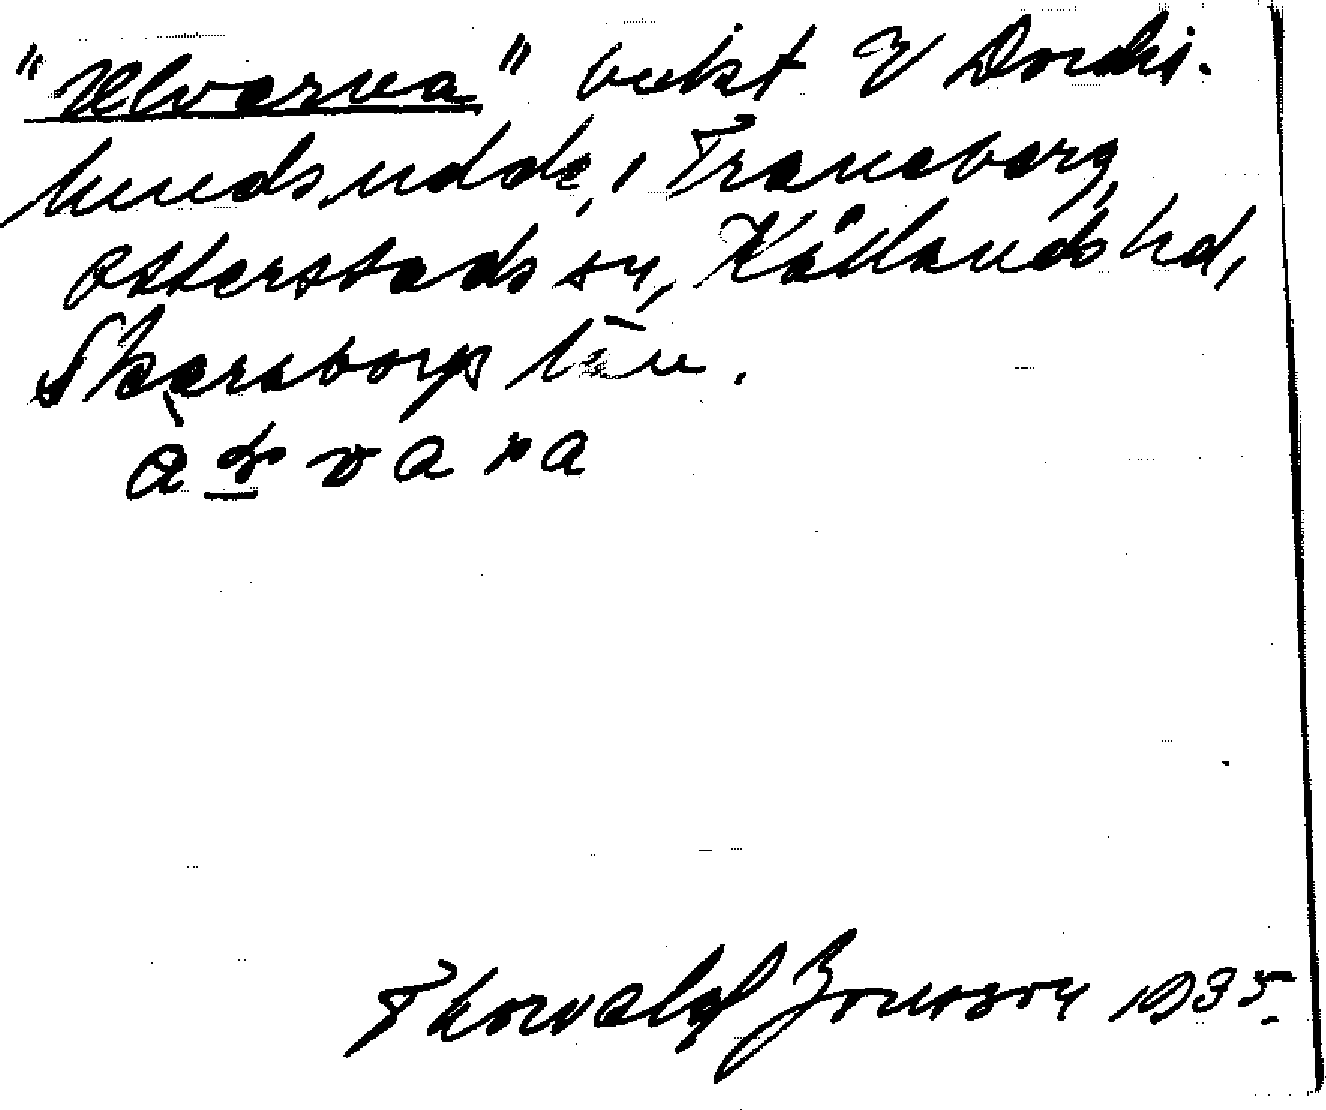 "Älvarna" vikt V Dordi-
hunds udde, Traneberg,
Otterstads sn, Kållands hd,
Skaraborgs län.
Thorwald Jonsson 1935.